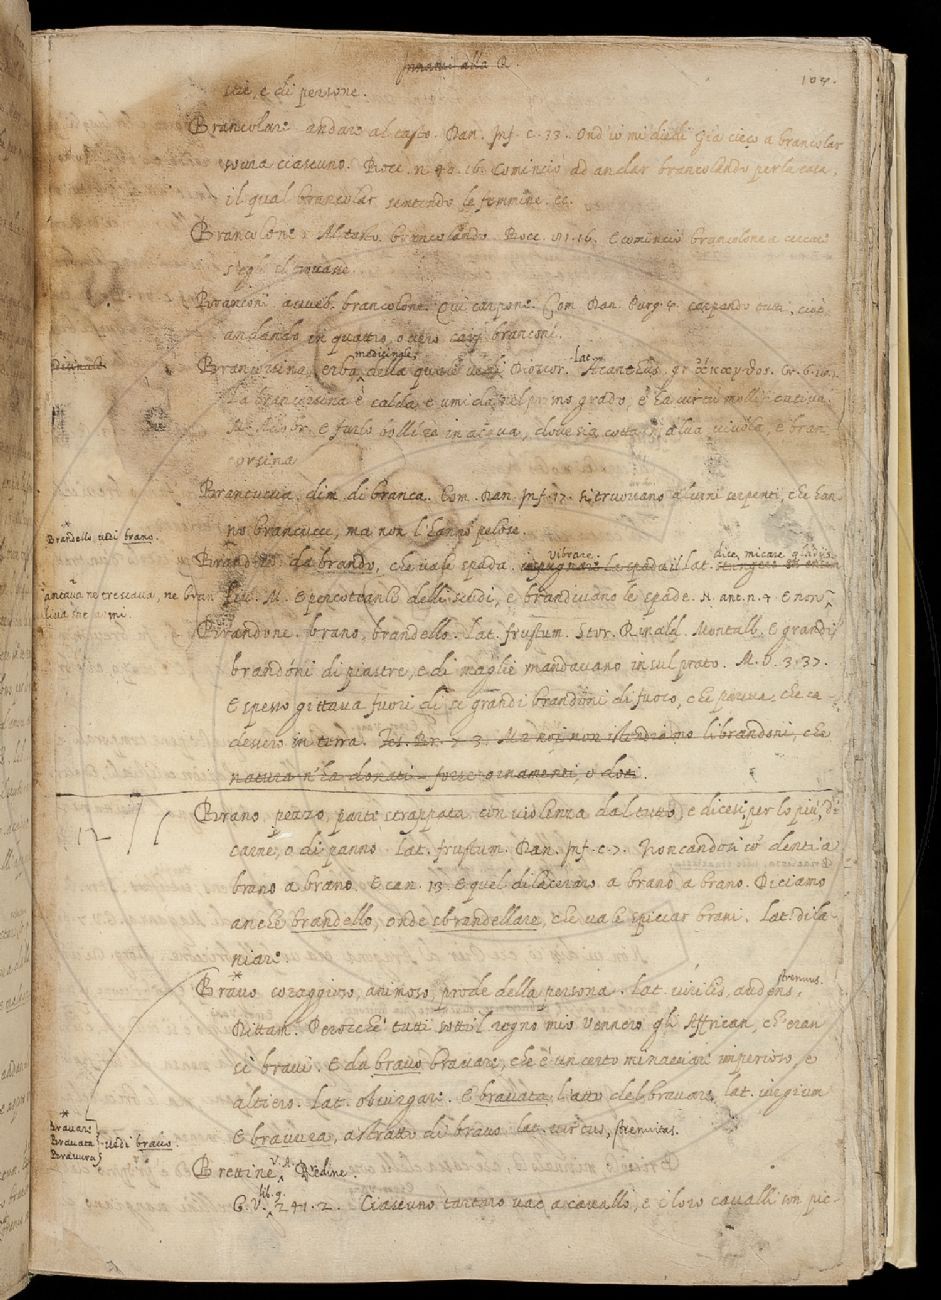 innanzi alla Q.
104.
stie, e di persone.
Brancolare andare al tasto. Dan. Inf. c. 33. Ond' io mi diedi Già cieco a brancolar
sovra ciascuno. Bocc. n. 40. 16. Cominciò ad andar brancolando per la casa,
il qual brancolar sentendo le femmine. ec.
Brancolone. Al tasto. brancolando. Bocc. 81. 16. E cominciò brancolone a cercare
s'egli il trovasse.
Branconi. avveb. brancolone. Qui carpone. Com. Dan. Purg. 4. carpando tutti, cioè
andando in quattro, o vero branconi.
medicinale
Brancorsina, erba della quale vedi Dioscor. Lat. Acanthus. gr. Cr. 6.
La brancorsina è calda, e umida nel primo grado, e ha virtù mollificativa.
M. Aldobr. E fusse bollite in acqua, dove sia cotta malva, viuola, e bran
corsina
Brancuccia, dim. di branca. Com. Dan. Inf. 17. Si truovano alcuni serpenti, che han-
no brancucce, ma non l'hanno pelose.
* Brandello, vedi brano.
da brando, che vale spada. vibrare. il lat. dice, micare gladijs.
M. E percoteansi delli scudi, e brandivano le spade. N. ant. n. 4. E non
ancava ne cresceva, ne bran
diva sue armi.
Brandone. brano, brandello. Lat. frustum. Stor. Rinald. Montalb. E grandi
brandoni di piastre, e di maglie mandavano in sul prato. M. V. 3. 37.
E spesso gittava fuori di se grandi brandoni di fuoco, che pareva, che ca-
dessero in terra. Tes. Br. 5. 3. Ma noi non intendiamo li brandoni, che
natura n'ha donati fuere ornamenti, o doti.
12
Brano, pezzo, parte strappata con violenza dal tutto, e dicesi per lo più, di
carne, o di panno. Lat. frustum. Dan. Inf. c. 7. Troncandosi co' denti a
brano a brano. E can. 13. E quel dilaceraro a brano, a brano. Diciamo
anche brandello, onde sbrandellare, che vale spiccar brani. Lat. dila-
niare
* Bravo coraggioso, animoso, prode della persona. Lat. virilis, audens, strenuus.
Dittam. Perocche tutti sotto 'l regno mio Vennero gli Affrican, ch'eran
si bravi. E da bravo bravare, che è un certo minacciare imperioso, e
altiero. Lat. obiurgare. E bravata, l'atto del bravare, lat. iurgium
E bravura, astratto di bravo lat. virtus, strenuitas.
* Bravare
Bravata vedi bravo.
Bravura
Brettine, V. A. Redine.
G. V. lib. 8. 2. Ciascuno tartaro va a cavallo, e i loro cavalli son pic-